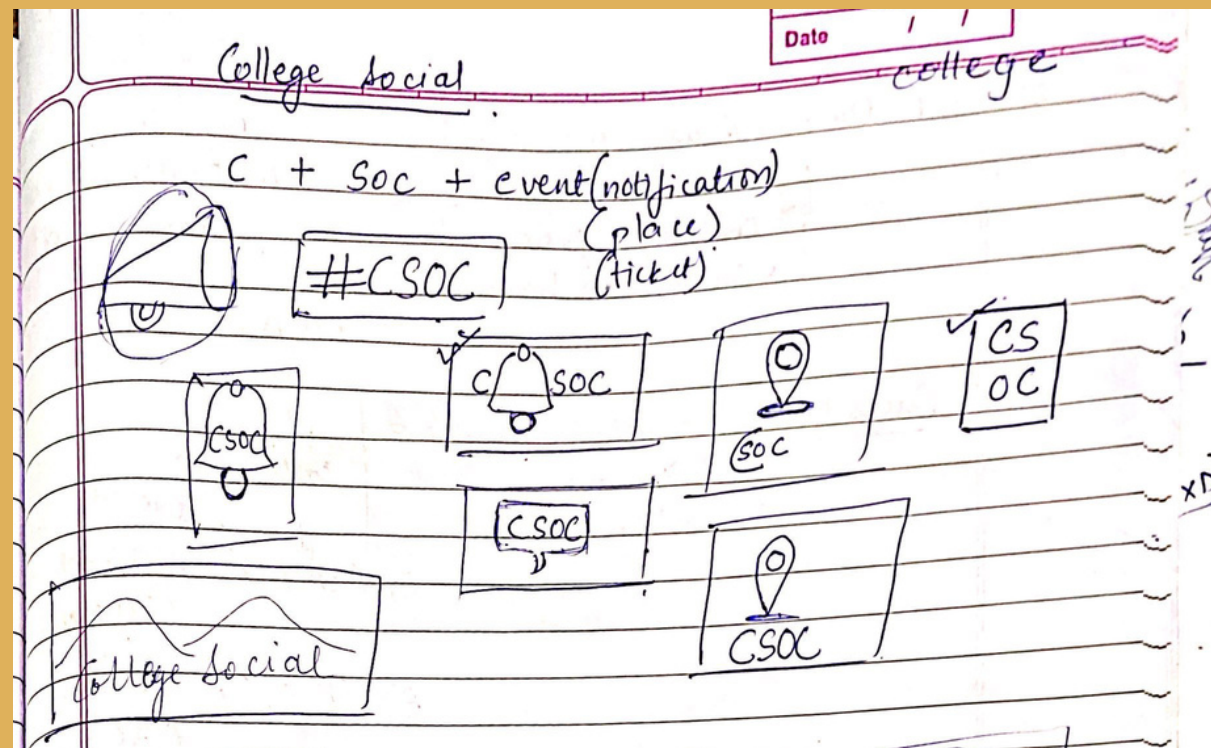 Date / /
College Social
college
C + SOC + event (notification)
(place)
(ticket)
#CSOC
C SOC
CS
OC
CSOC
SOC
CSOC
CSOC
College Social